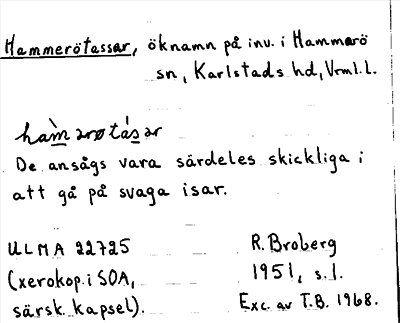 Hammerötassar, öknamn på inv. i Hammarö
sn, Karlstads hd, Vrml.l.
De ansågs vara särdeles skickliga i
att gå på svaga isar.
ULMA 22725
(xerokop. i SOA,
särsk. kapsel).
R. Broberg
1951, s. 1.
Exc. av T.B. 1968.